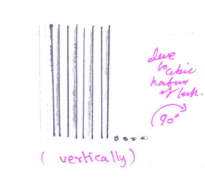 due
to cubic
nature
of
(90°
( vertically )